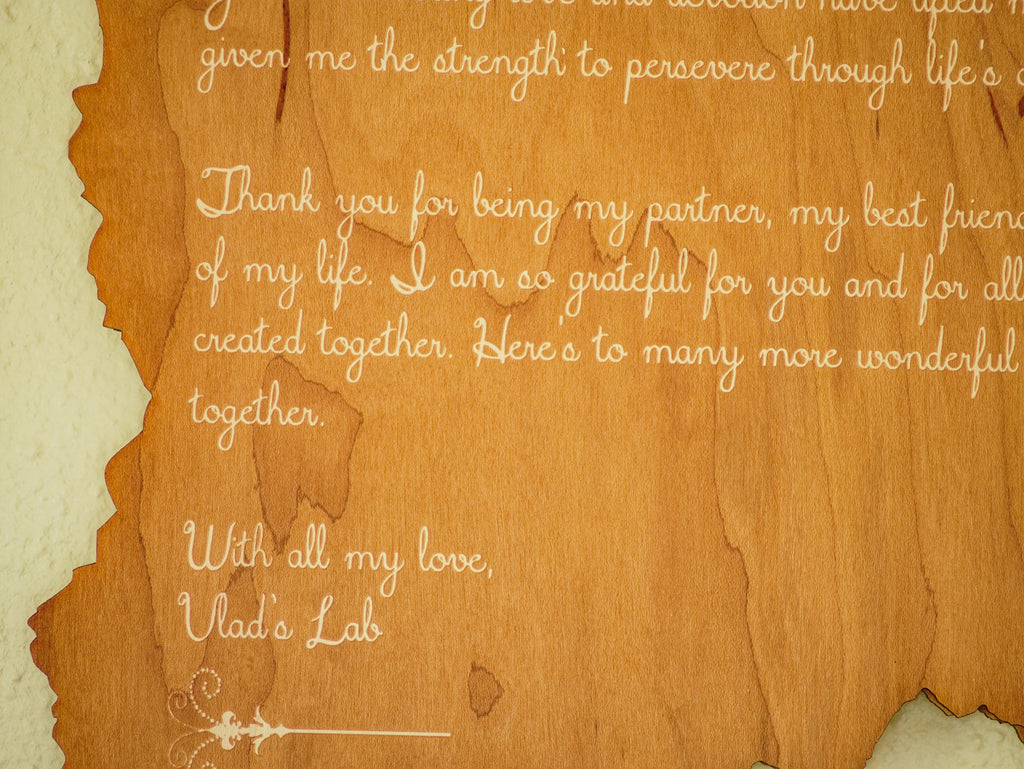 love and devotion have lifted
given me the strength to persevere through life's
Thank you for being my partner, my best friend
of my life. I am so grateful for you and for all
created together. Here's to many more wonderful
together.
With all my love,
Vlad's Lab